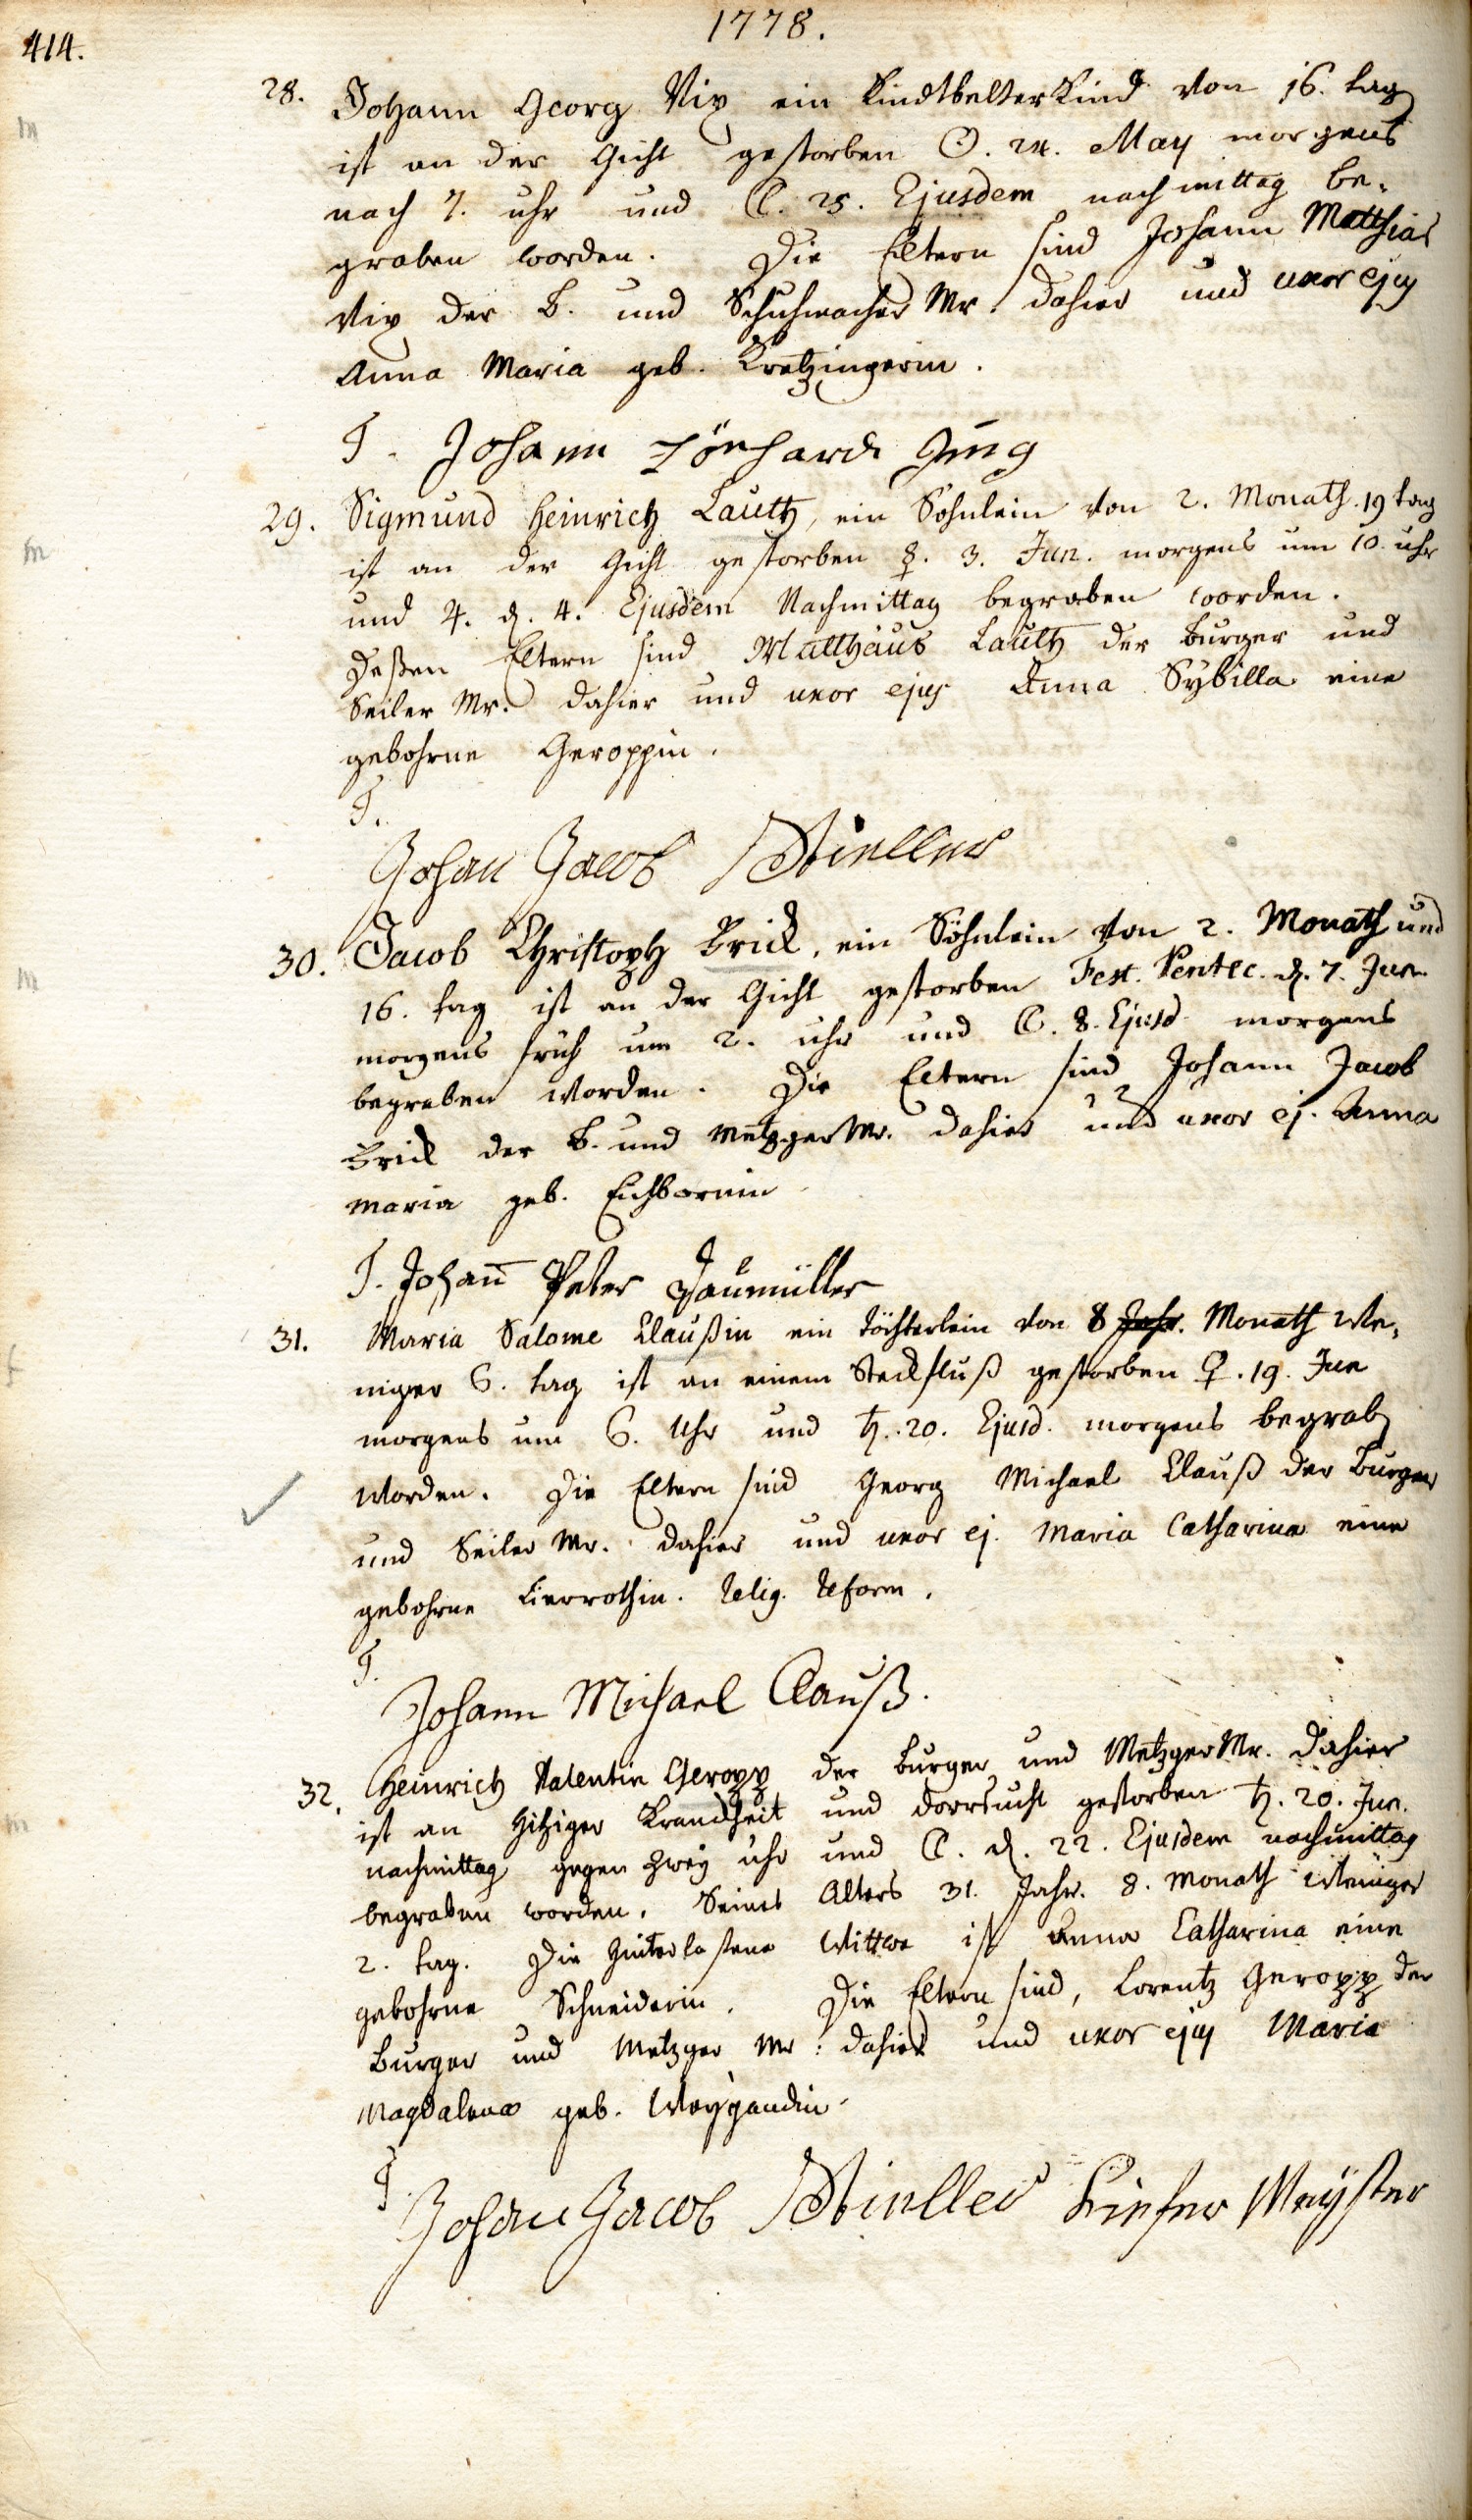 414.
1778.
28. Johann Georg Vix ein Kindtbetter Kind von 16. tag
ist an der Gicht gestorben ☉. 24. May morgens
nach 7. uhr und ☾. 25. Ejusdem nachmittag be-
graben worden. Die Eltern sind Johann Matthias
Vix der B. und Schuhmacher Mr. dahier und uxor ejus
Anna Maria geb. Kretzingerin.
T. Johann Jung
m
29. Sigmund Heinrich Lautz, ein Sohnlein von 2. Monath. 19 tag
ist an der Gicht gestorben ☿. 3. Jun. morgens um 10. uhr
und ♃. d. 4. Ejusdem Nachmittag begraben worden.
Deßen Eltern sind Matthäus Lautz der burger und
Seiler Mr. dahier und uxor ejus Anna Sybilla eine
gebohrne Geroppin.
T.
Johan Jacob Müeller
m
30. Jacob Christoph Brick, ein Söhnlein von 2. Monath und
16. tag ist an der Gicht gestorben Fest. Pentec. d. 7. Jun.
morgens früh um 2. uhr und ☾. 8. Ejusd. morgens
begraben worden. Die Eltern sind Johann Jacob
Brick der B. und Metzger Mr. dahier und uxor ej. Anna
Maria geb. Eichbornin
T. Johann Peter Daumüller
m
31. Maria Salome Claußin ein töchterlein von 8 Jahr. Monath we-
niger 6. tag ist an einem Steckfluß gestorben ♀. 19. Jun
morgens um 6. Uhr und ♄. 20. Ejusd. morgens begrab
worden. Die Eltern sind Georg Michael Clauß der burger
und Seiler Mr. dahier und uxor ej. Maria Catharina eine
gebohrne Pierrothin. Relig. Reform.
T.
Johann Michael Clauß.
f
32. Heinrich Valentin Geropp der burger und Metzger Mr. dahier
ist an hitziger Kranckheit und dorrsucht gestorben ♄. 20. Jun.
nachmittag gegen zwey uhr und ☾. d. 22. Ejusdem nachmittag
begraben worden. Seines Alters 31. Jahr. 8. Monath weniger
2. tag. Die hinterlaßene Wittwe ist Anna Catharina eine
gebohrne Schneiderin. Die Eltern sind, Lorentz Geropp der
burger und Metzger Mr: dahier und uxor ejus Maria
Magdalena geb. Weygandin.
T.
Johan Jacob Müeller Kiefer Meyster
m